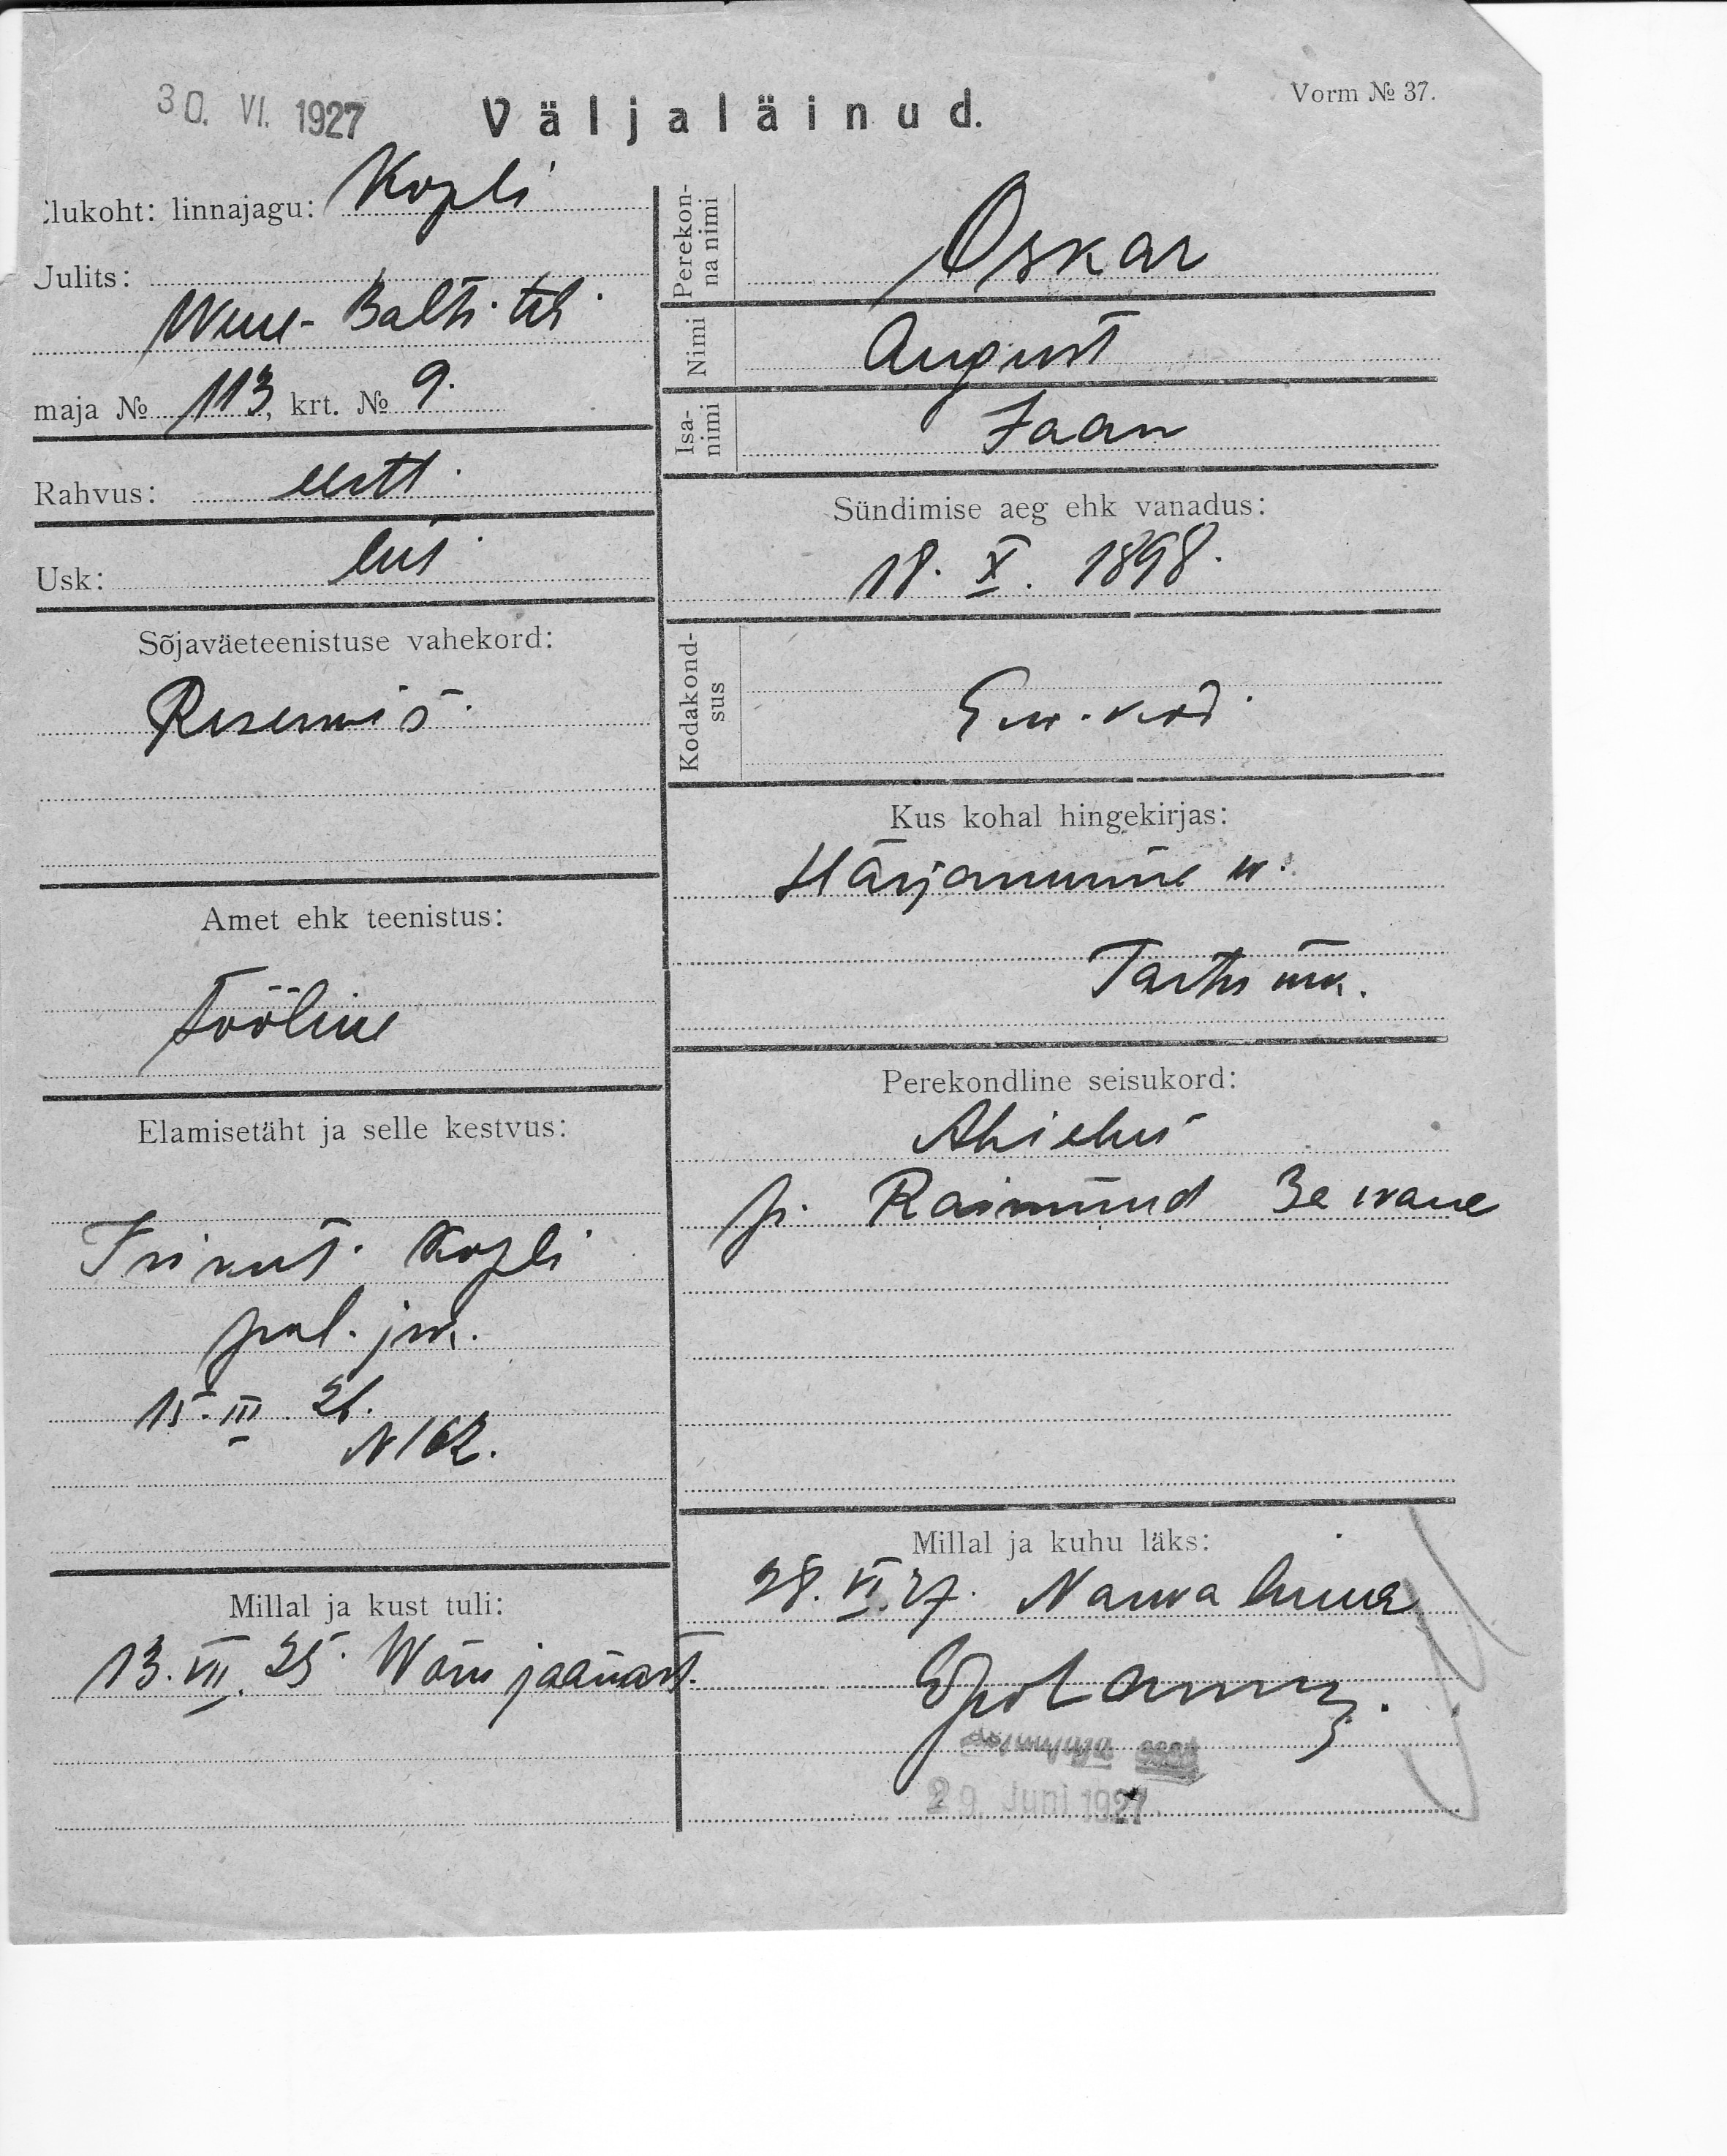 30. VI. 1927
Väljaläinud.
Vorm № 37.
lukoht: linnajagu: Kopli
Julits:
Wene-Balti teh.
maja № 113, krt. № 9.
Rahvus: eesti
Usk: lut
Sõjaväeteenistuse vahekord:
Reserwis
Amet ehk teenistus:
Tööline
Elamisetäht ja selle kestvus:
Isikut. Kopli
pol. jsk.
15. III. 26.
N 162.
Millal ja kust tuli:
13. VII. 25. Woru jaamast.
Perekonna nimi
Oskar
Nimi
August
Isanimi
Jaan
Sündimise aeg ehk vanadus:
18. X. 1898.
Kodakondsus
Eew. kod.
Kus kohal hingekirjas:
Härjanurme w.
Tartu mk.
Perekondline seisukord:
Abielus
p. Raimund 3 a wana
Millal ja kuhu läks:
28. VI. 27. Narwa linna
29. Juni 1927